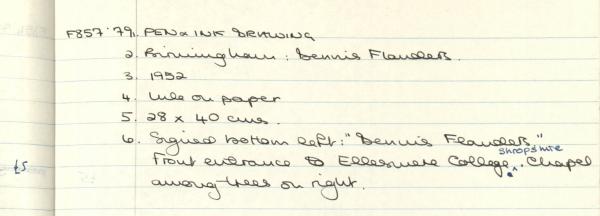 F857'79. 1. PEN & INK DRAWING
2. Birmingham : Dennis Flanders.
3. 1952
4. Ink on paper
5. 28 x 40 cms.
6. Signed bottom left: "Dennis Flanders"
Front entrance to Ellesmere College, Shropshire. Chapel
£5
among trees on right.